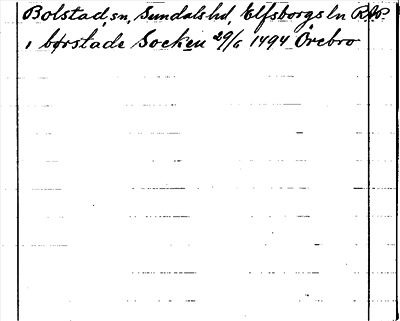 Bolstad, sn, Sundals hd, Elfsborgs ln RAP.
i børstade Socken 29/6 1494 Örebro